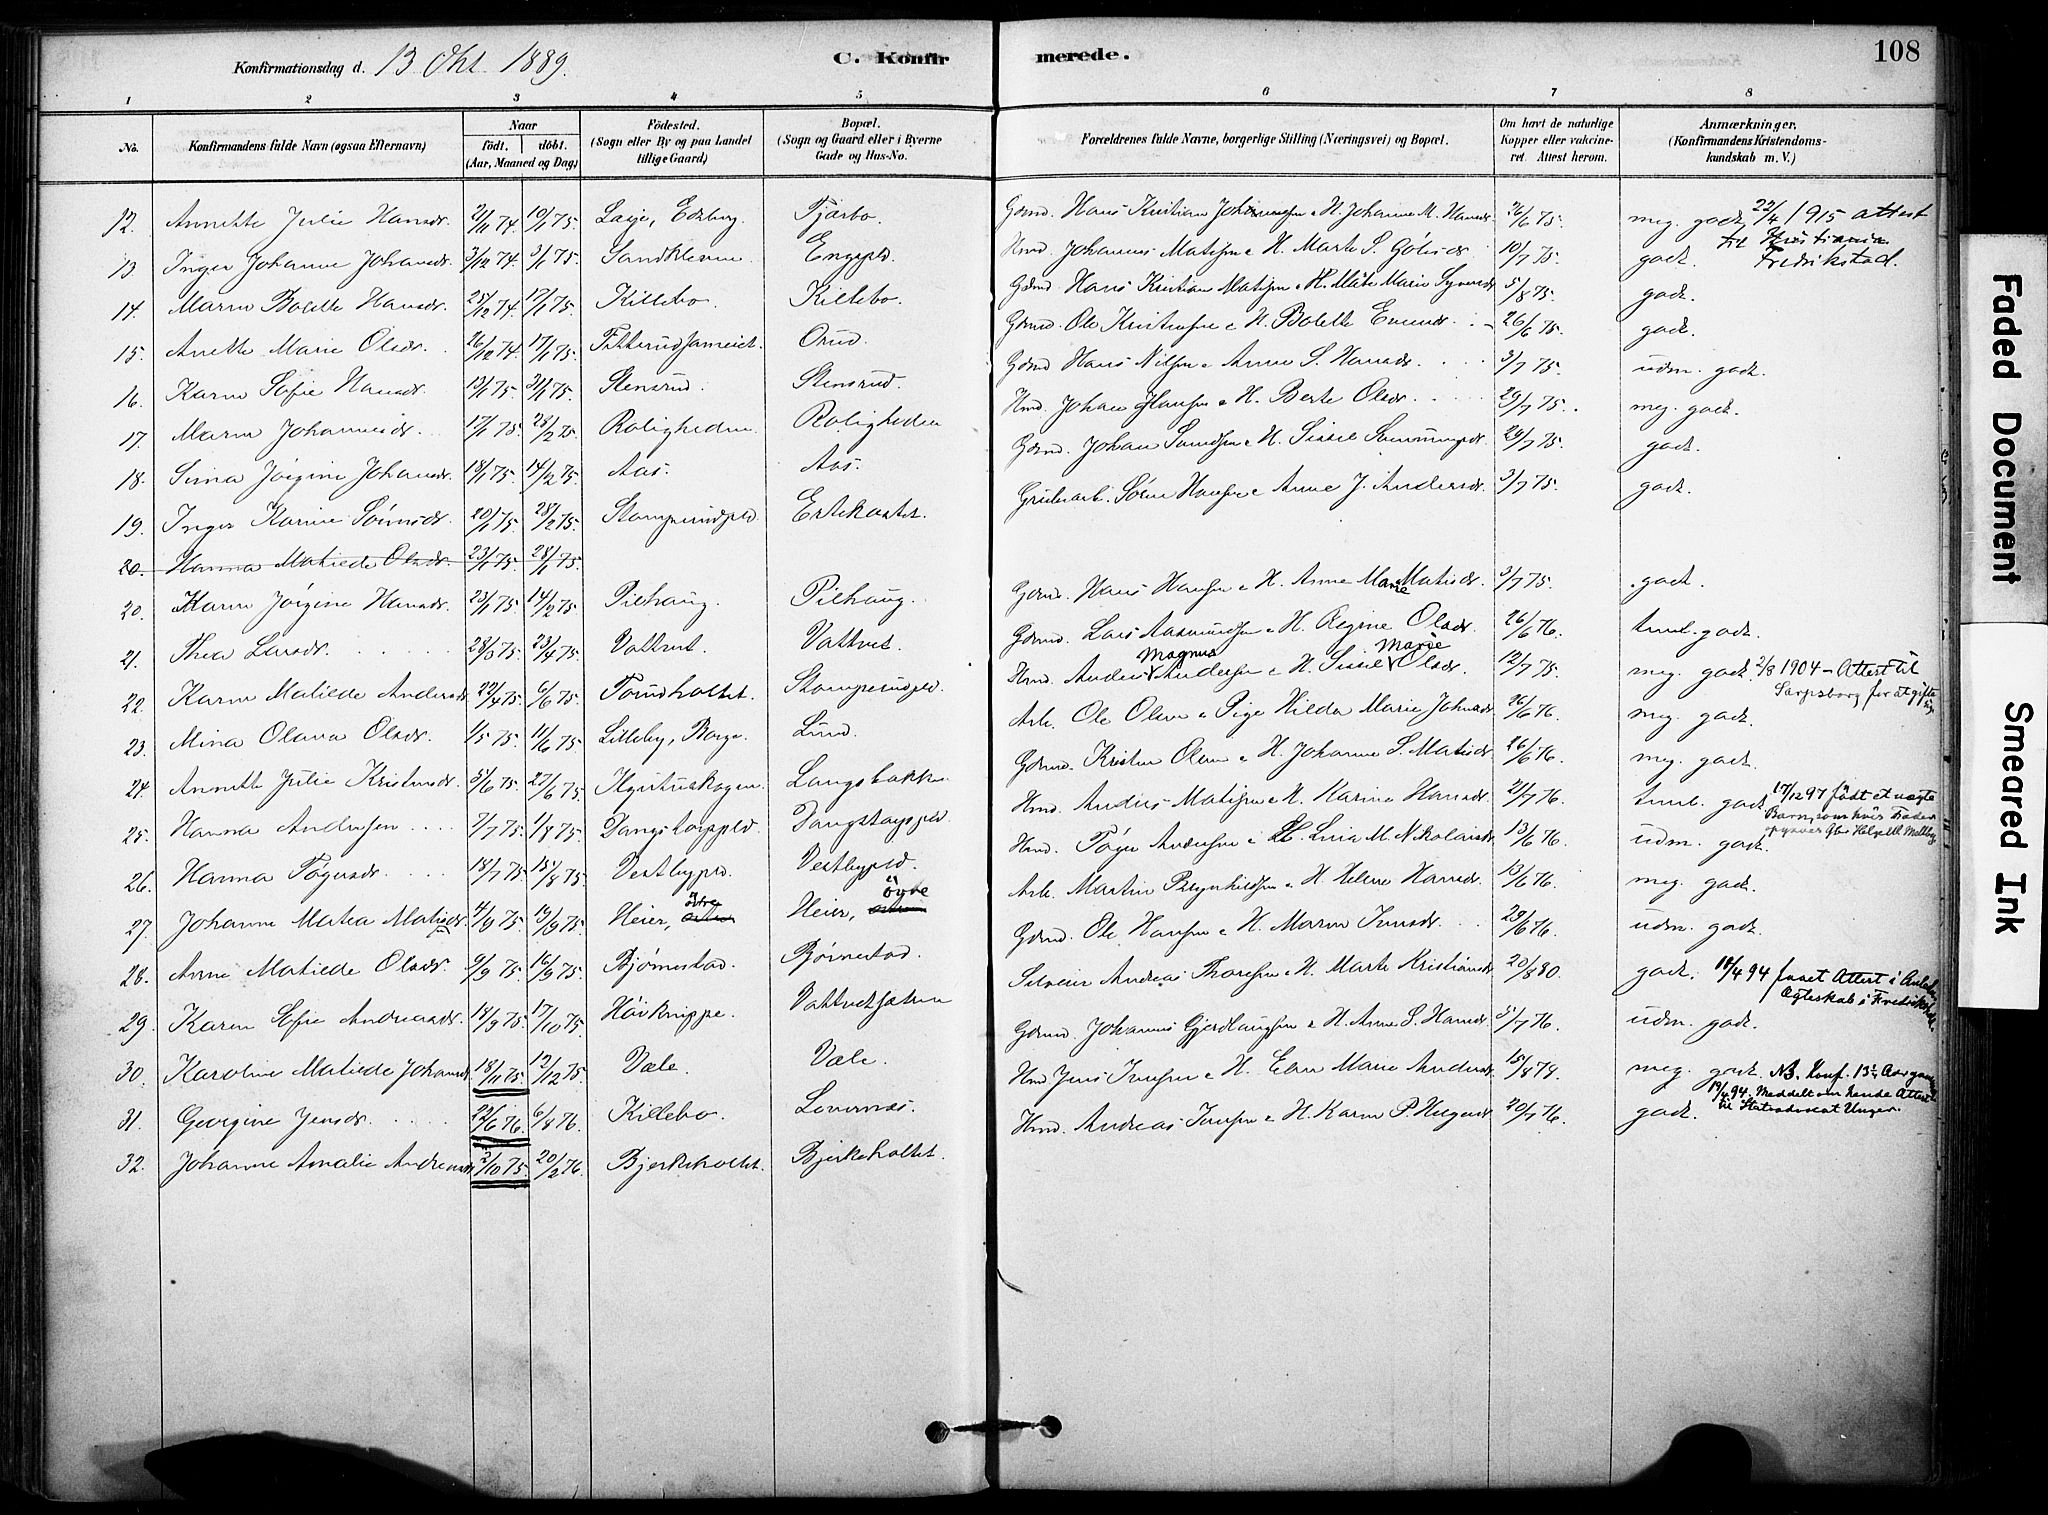 Konfirmationsdag d. 13 Okt. 1889.
C. Konfirmerede.
108
1 2 3 4 5 6 7 8
No.
Konfirmandens fulde Navn (ogsaa Efternavn)
Naar
födt. döbt.
(Aar, Maaned og Dag)
Födested.
(Sogn eller By og paa Landet
tillige Gaard)
Bopæl.
(Sogn og Gaard eller i Byerne
Gade og Hus-No.
Forældrenes fulde Navne, borgerlige Stilling (Næringsvei) og Bopæl.
Om havt de naturlige
Kopper eller vakcine-
ret. Attest herom.
Anmærkninger.
(Konfirmandens Kristendoms-
kundskab m. V.)
12. Annette Julie Hansdr. 2/11 74. 10/1 75. Tjærbo. Gdmd. Hans Kristian H. Johanne M. Hansdr. 26/6 75. meg. godt. 22/4 1915 attest
til Kristiania
Fredrikstad.
13 Inger Johanne Johansdr. 3/12 74. 3/1 75. Sandkleven Engepld. Hmd. Johannes Matisen & H. Marte S. 10/7 75. godt.
14. Maren Bolette Hansdr. 25/12 74. 17/1 75. Killebo. Killebo. Gdmd. Hans Kristian Matisen & H. Marie 5/8 75. godt.
15. Anette Marie Olsdr. 26/12 74. 17/1 75. Orud. Gdmd. Ole Kristensen & H. Bolette 26/6 75. godt.
16. Karen Sofie Hansdr. 13/1 75. 31/1 75. Stensrud. Stensrud. Gdmd Hans Nilsen & Anne S. Hansdr. 3/7 75. udm. godt.
17. Maren Johannesdr. 17/1 75. 28/2 75. Roligheden Roligheden Hmd. Johan Hansen & H. Berte Olsdr. 29/7 75. meg. godt.
18. Sina Jörgine Johansdr. 18/1 75. 14/2 75. Aas. Aas. Gdmd. Johan & H. Sissel 29/7 75. godt.
19. Inger Karine Sörensdr. 20/1 75. 28/2 75. Stomperudpld. Ertekastet. Sören Hansen & Anne J. Andersdr. 3/7 75. godt.
20. Hanna Matilde Olsdr. 23/1 75. 28/1 75.
20. Karen Jörgine Hansdr. 23/1 75. 14/2 75. Pilhaug. Pilhaug. Gdmd. Hans Hansen & H. Anne Marie Matisdr. 3/7 75. godt.
21. Thea Larsdr. 28/3 75. 23/4 75. Vattvet. Vattvet. Gdmd. Lars Aasmundsen & H. Regine Olsdr. 26/6 76. tml. godt.
22. Karen Matilde Andersdr 22/4 75. 6/6 75. Torudholtet. Stomperudpld. Hmd. Anders Magnus Andersen & H. Sissel Marie Olsdr. 12/7 75. meg. godt. 2/8 1904 - Attest til
Sarpsborg for at gifte
sig
23. Mina Olava Olsdr. 1/5 75. 11/6 75. Lilleby, Borge. Lund. Arb. Ole Olsen & Pige Hilda Marie 26/6 76. meg. godt.
24. Annette Julie Kristensdr. 5/6 75. 27/6 75. Langebakke Gdmd. Kristen Olsen & H. Johanne S. Matisdr. 26/6 76. meg. godt.
25. Hanna Andersen 7/7 75. 1/8 75. Hmd. Anders Matisen & H. Karine Hansdr. 21/7 76. tml. godt. 17/12 97 födt et uægte
Barn, som hvis Fader
opgives
26. Hanna Tögersdr. 18/7 75. 15/8 75. Vestbypld. Vestbypld. Hmd. Töger Andersen & H. Lina M. Nikolaisdr. 13/6 76. udm. godt.
27. Johanne Matea Matisdr 4/9 75. 19/9 75. Heier, östre Heier, övre Arb. Martin Brynhildsen & H. Helene Hansdr. 13/6 76. meg. godt.
28. Anne Matilde Olsdr. 9/9 75. 16/9 75. Björnestad. Björnestad. Gdmd. Ole Hansen & H. Maren Jensdr. 29/6 76. udm. godt.
29. Karen Sofie Andreasdr. 18/9 75. 17/10 75. Hövknippe. Andreas Thoresen & H. Marte Kristiansdr. 20/8 80. godt. 18/4 94 faaet Attest i Anledn.
Ægteskab i Fredrikstad.
30. Karoline Matilde Johansdr. 18/11 75. 12/12 75. Væle. Væle. Gdmd. Johannes Gjerlaugsen & H. Anne S. Hansdr. 5/7 76. udm. godt.
31. Georgine Jensdr. 22/6 76. 6/8 76. Killebo. Hmd Jens Jensen & H. Marie Andersdr. 15/8 79. meg. godt. NB. Konf. 13¼ Aar gammel
19/4 94. Meddelt om hende Attest
til Statsadvokat Unger.
32. Johanne Amalie Andreasdr. 2/10 75. 20/2 76. Bjerkeholtet. Bjerkeholtet. Hmd. Andreas Jensen & H. Karen P. Helgesdr. 20/7 76. godt.
Faded Document
Smeared Ink